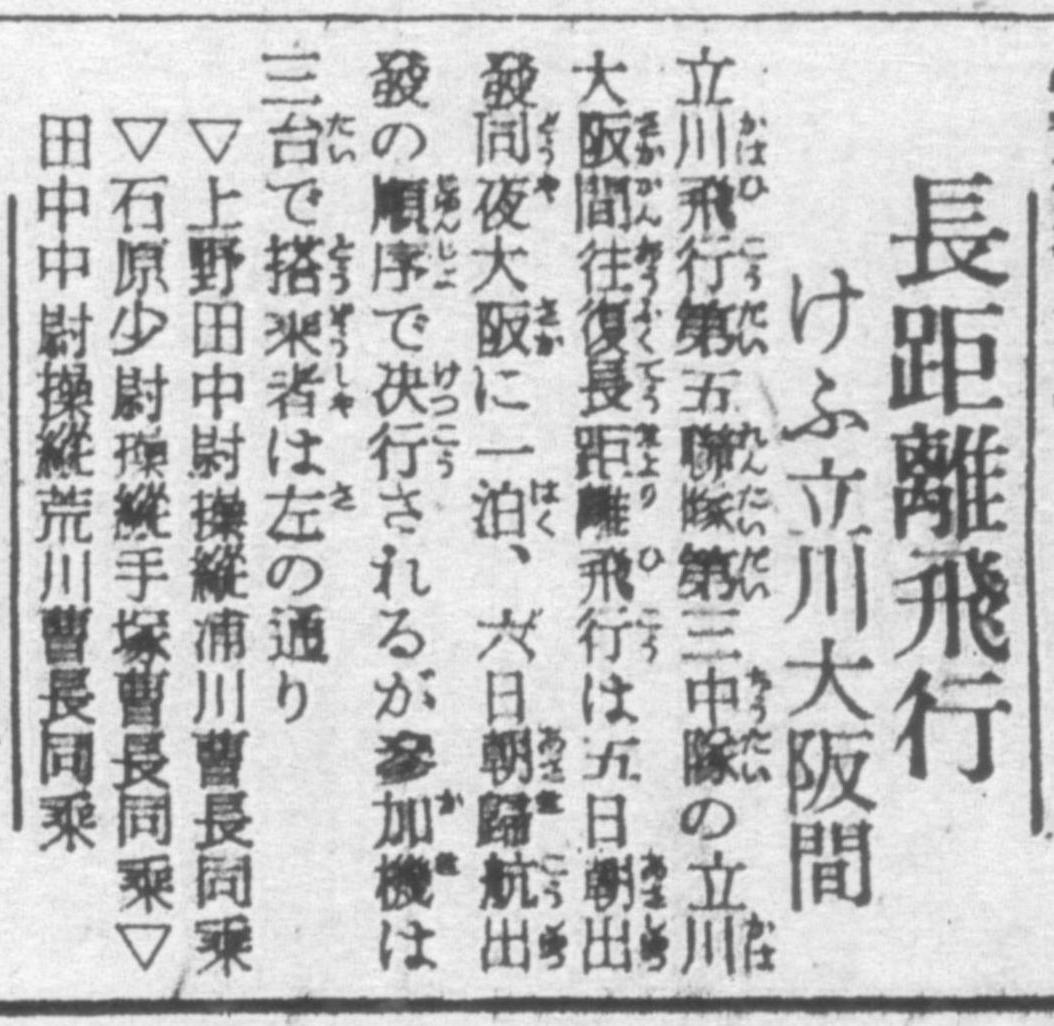 長距離飛行
けふ立川大阪間
立川飛行第五聯隊第三中隊の立川
大阪間往復長距離飛行は五日朝出
發同夜大阪に一泊、六日朝歸航出
發の順序で决行されるが參加機は
三台で搭乘者は左の通り
▽上野田中尉操縱浦川曹長同乘
▽石原少尉操縱手塚曹長同乘▽
田中中尉操縱荒川曹長同乘